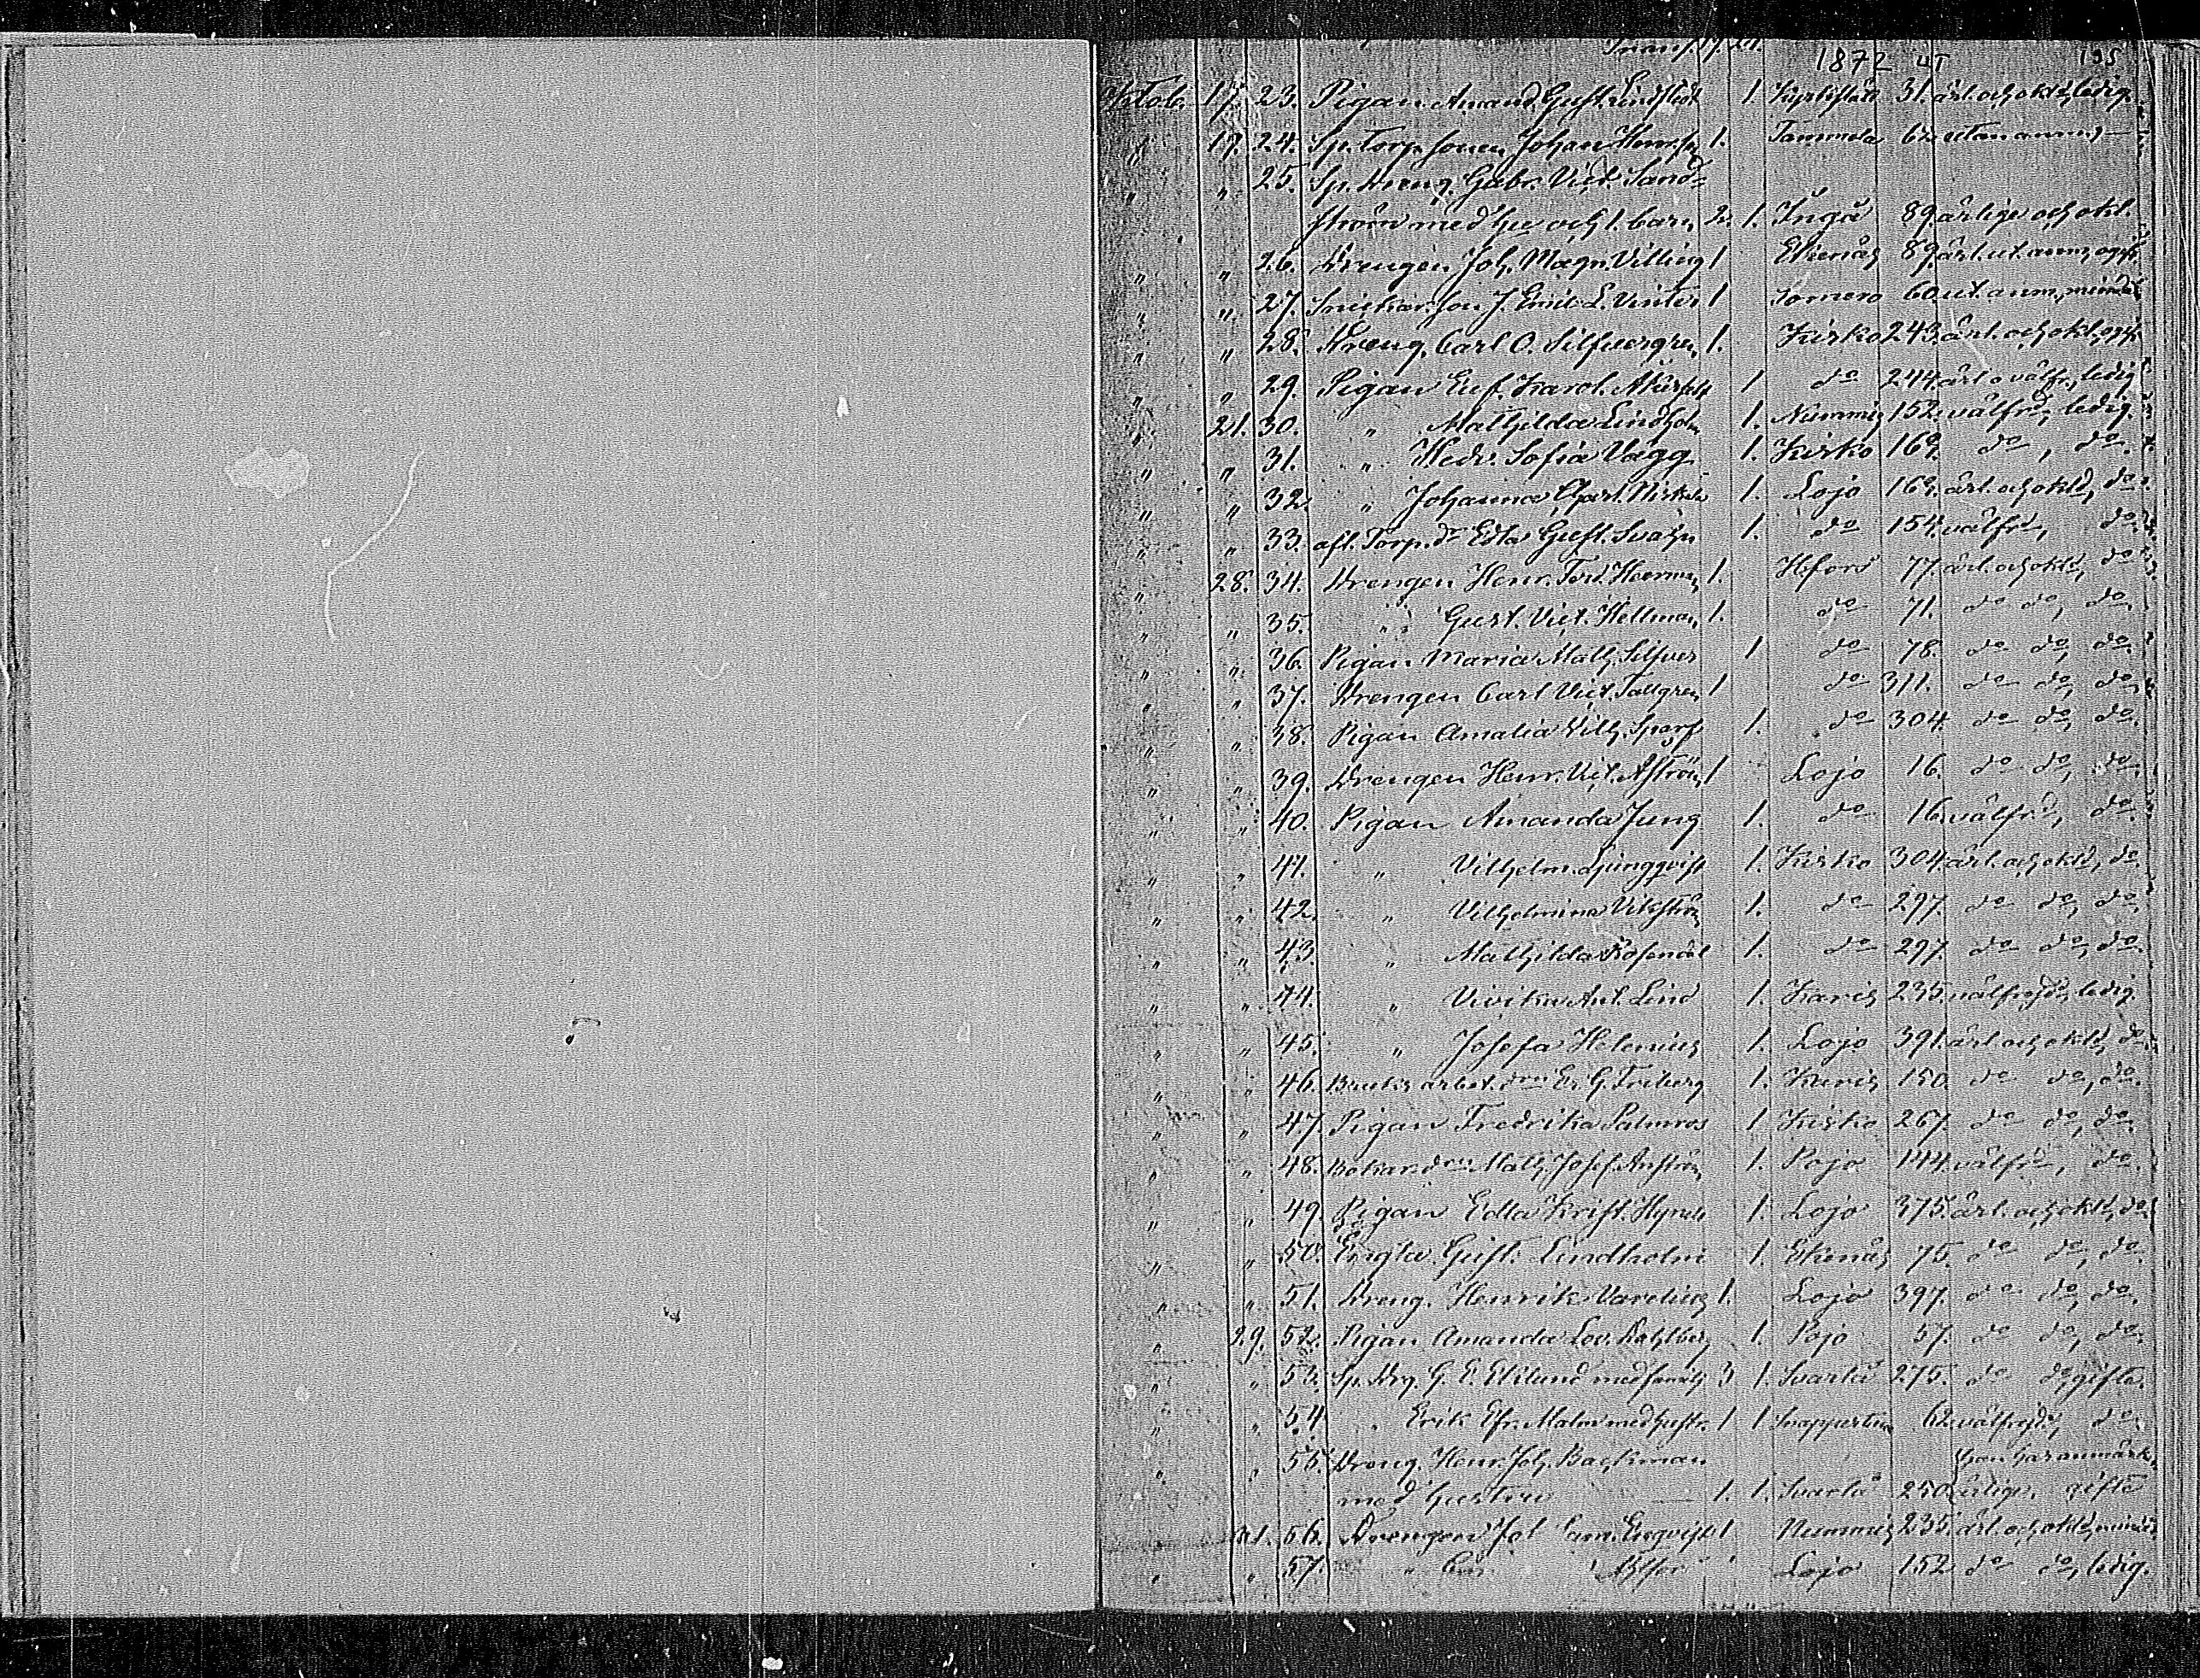 Transp. 17. 21.
1872 UT 195
Oktob. 17. 23. Pigan Amand. Gust. Lindstedt 1. 31. ärl. och oktd, ledig.
" 17. 24. Sp. Torp. sonen Johan Henr. 1. Tammela 62 utan anm.
" " 25. Sp. Dreng. Gabr. Vict. Sand=
ström med hu och 1. barn 2. 1. Ingå 89. ärlige och okl.
" " 26. Drengen Joh. Magn. Villing 1 Ekenäs 89. ärl. ut. anm.
" " 27. Snickar. son J. Emil L. Vinter 1 Somero 60. ut. anm.
" " 28. Dreng. Carl O. Silfvergren 1. Kisko 243. ärl. och okl.
" " 29. Pigan Euf. Karol. 1 do 244. ärl. o välfr. ledig
" 21. 30. " Mathilda Lindholm 1. Nummis 152. välfrd, ledig.
" " 31. " Hedv. Sofia Vägg 1. Kisko 162. do, do.
" " 32. " Johanna Charl. 1. Lojo 162. ärl. och oktd, do.
" " 33. afl. Torp. dr Edla Gust. Svahn 1. do 154. välfrd, do.
" 28. 34. Drengen Henr. Ferd. Heerman 1. Hfors 77. ärl. och oktd, do
" " 35. " Gust. Vict. Hellman 1. do 71. do do, do
" " 36. Pigan Maria Math. Silfver 1 do 78. do do, do.
" " 37. Drengen Carl Vict. Tallgren 1 do 311. do do, do
" " 38. Pigan Amalia Vilh. Sparf 1. do 304. do do, do.
" " 39. Drengen Henr. Vict. Åström 1 Lojo 16. do do, do.
" " 40. Pigan Amanda Jung 1. do 16. välfrd, do.
" " 41. " Vilhelm. Ljungqvist 1. Kisko 304. ärl. och oktd, do.
" " 42. " Vilhelmina Vikström 1. do 297. do do, do.
" " 43. " Mathilda Rosendal 1. do 297. do do, do.
" " 44. " Vivika Ant. Lind 1. Karis 235. välfrejd, ledig.
" " 45. " Josefa Helenius 1. Lojo 391. ärl. och oktd, do.
" " 46. Bruks arbet. dren Er. G. Friberg 1. Karis 150. do do, do.
" " 47. Pigan Fredrika Palmros 1 Kisko 267. do do, do.
" " 48. dren Math. Josef. 1. Pojo 144. välfrd, do.
" " 49. Pigan Edla Krist. 1. Lojo 375. ärl. och oktd, do
" " 50. Gust. Lindholm 1. Ekenäs 75. do do, do.
" " 51. Dreng. Henrik Varelius 1. Lojo 397. do do, do.
" 29. 52. Pigan Amanda Lov. Dahlberg 1. Pojo 57. do do, do.
" " 53. Sp. Drg. G. E. Eklund med familj 3 1. Svartå 275. do do, gifte.
" " 54. " Erik Efr. Malm med hustr. 1 1 62. välfrejd, do.
" " 55. Dreng. Henr. Joh. Backman han har anmärk.
med hustru 1. 1. Svartå 250. ärlige. gifte
" 31. 56. Drengen Joh 1 Nummis 235. ärl. och oktd,
" " 57. " Lojo 152 do do, ledig.